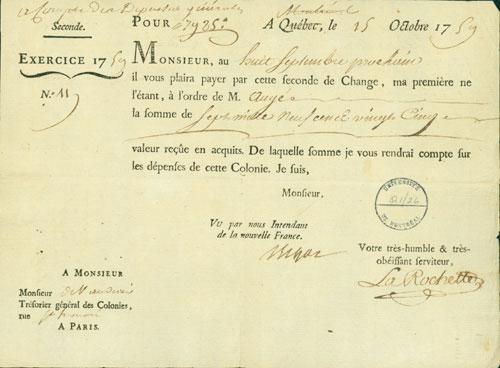 Compte des Dépenses générales
Seconde.
EXERCICE 1759
N.º 11
POUR 7985#
Montréal
A Québec, le 15 Octobre 1759
MONSIEUR, au huit Septembre prochain
il vous plaira payer par cette seconde de Change, ma première ne
l'étant, à l'ordre de M. Augé
la somme de Sept mille Neuf cent vingt Cinq
valeur reçûe en acquits. De laquelle somme je vous rendrai compte sur
les dépenses de cette Colonie. Je suis,
Monsieur,
VU par nous Intendant
de la nouvelle France.
Bigot
UNIVERSITÉ
DE MONTREAL
Votre très-humble & très-
obéissant serviteur,
La Rochette
A MONSIEUR
Monsieur
Trésorier général des Colonies,
rue
A PARIS.